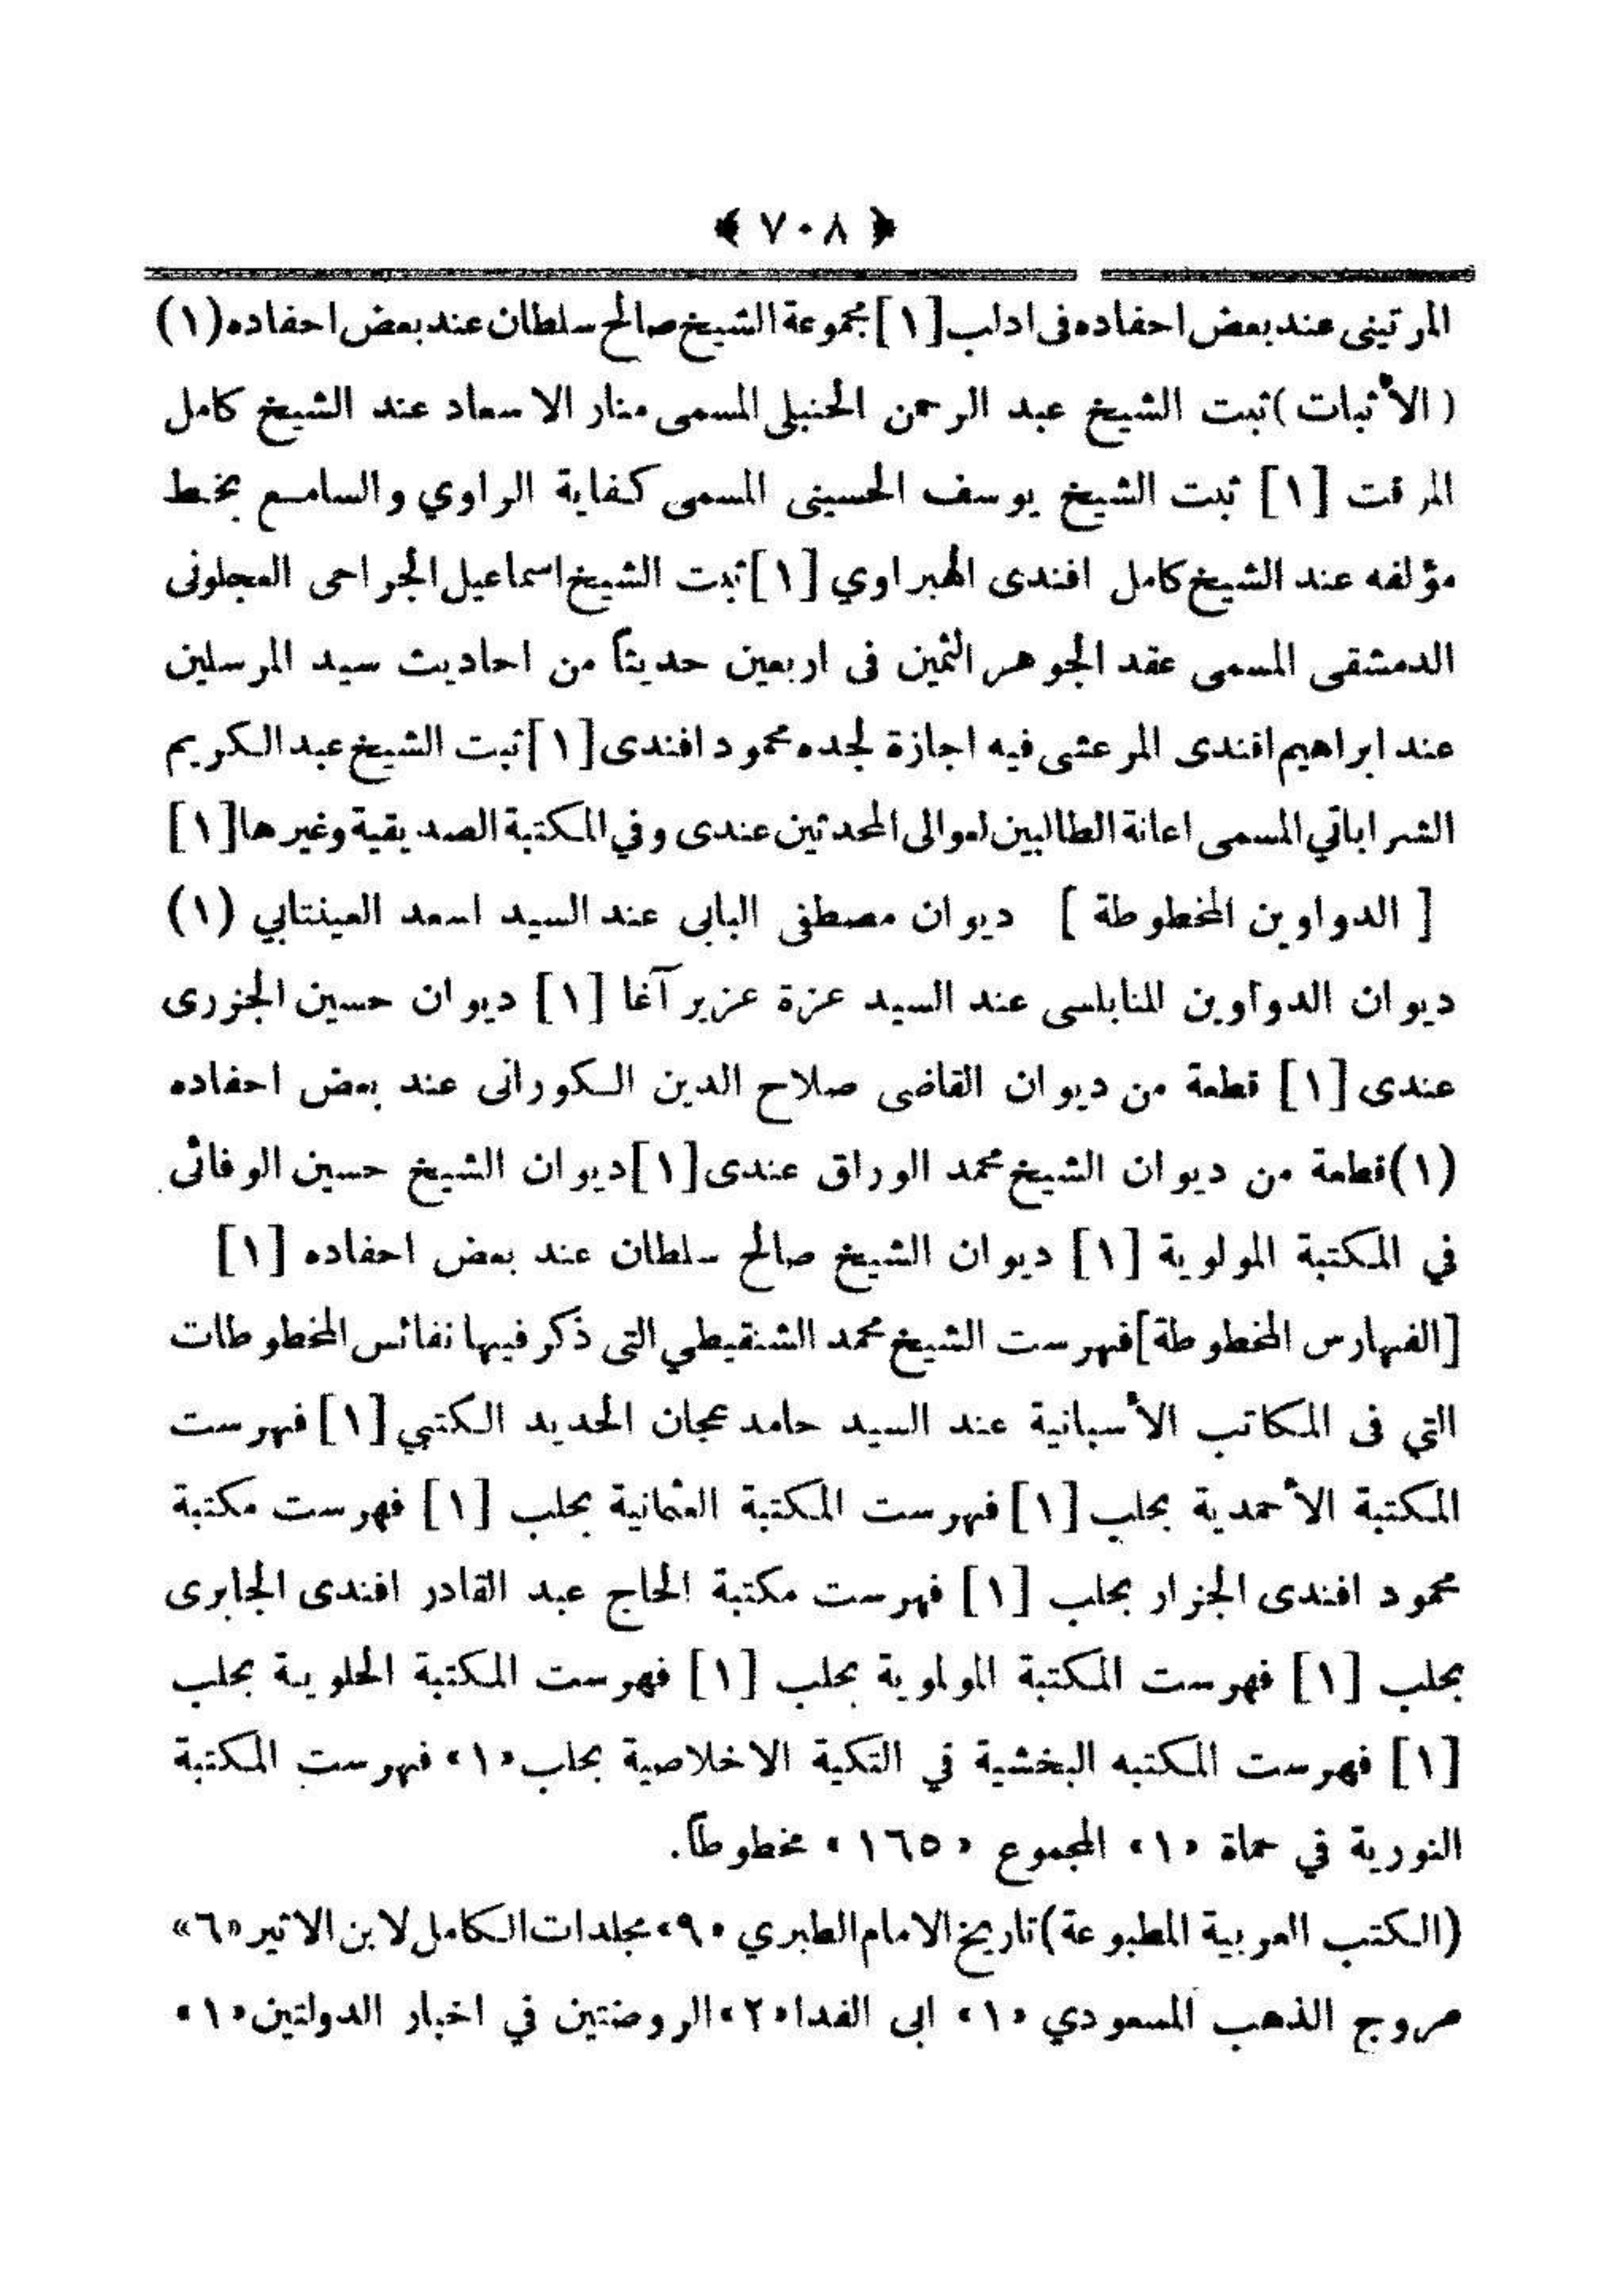 ﴿ ٧٠٨ ﴾
المرتينى عند بعض احفاده فى ادلب [١] مجموعة الشيخ صالح سلطان عند بعض احفاده (١)
( الأثبات ) ثبت الشيخ عبد الرحمن الحنبلي المسمى منار الاسعاد عند الشيخ كامل
المرقت [١] ثبت الشيخ يوسف الحسينى المسمى كفاية الراوي والسامع بخط
مؤلفه عند الشيخ كامل افندى الهبراوي [١] ثبت الشيخ اسماعيل الجراحى العجلونى
الدمشقى المسمى عقد الجوهر الثمين فى اربعين حديثاً من احاديث سيد المرسلين
عند ابراهيم افندى المرعشى فيه اجازة لجده محمود افندى [١] ثبت الشيخ عبد الكريم
الشراباتي المسمى اعانة الطالبين لعوالى المحدثين عندى وفي المكتبة الصديقية وغيرها [١]
[ الدواوين المخطوطة ] ديوان مصطفى البابى عند السيد اسعد العينتابي (١)
ديوان الدواوين للنابلسى عند السيد عزة عزير آغا [١] ديوان حسين الجزرى
عندى [١] قطعة من ديوان القاضى صلاح الدين الكورانى عند بعض احفاده
(١) قطعة من ديوان الشيخ محمد الوراق عندى [١] ديوان الشيخ حسين الوفائى
في المكتبة المولوية [١] ديوان الشيخ صالح سلطان عند بعض احفاده [١]
[الفهارس المخطوطة] فهرست الشيخ محمد الشنقيطي التى ذكر فيها نفائس المخطوطات
التي فى المكاتب الأسبانية عند السيد حامد عجان الحديد الكتبي [١] فهرست
المكتبة الأحمدية بحلب [١] فهرست المكتبة العثمانية بحلب [١] فهرست مكتبة
محمود افندى الجزار بحلب [١] فهرست مكتبة الحاج عبد القادر افندى الجابرى
بحلب [١] فهرست المكتبة المولوية بحلب [١] فهرست المكتبة الحلوية بحلب
[١] فهرست المكتبه البخشية في التكية الاخلاصية بحلب «١» فهرست المكتبة
النورية في حماة «١» المجموع «١٦٥» مخطوطاً.
(الكتب العربية المطبوعة) تاريخ الامام الطبري «٩» مجلدات الكامل لابن الاثير «٦»
مروج الذهب المسعودي «١» ابى الفدا «٢» الروضتين في اخبار الدولتين «١»